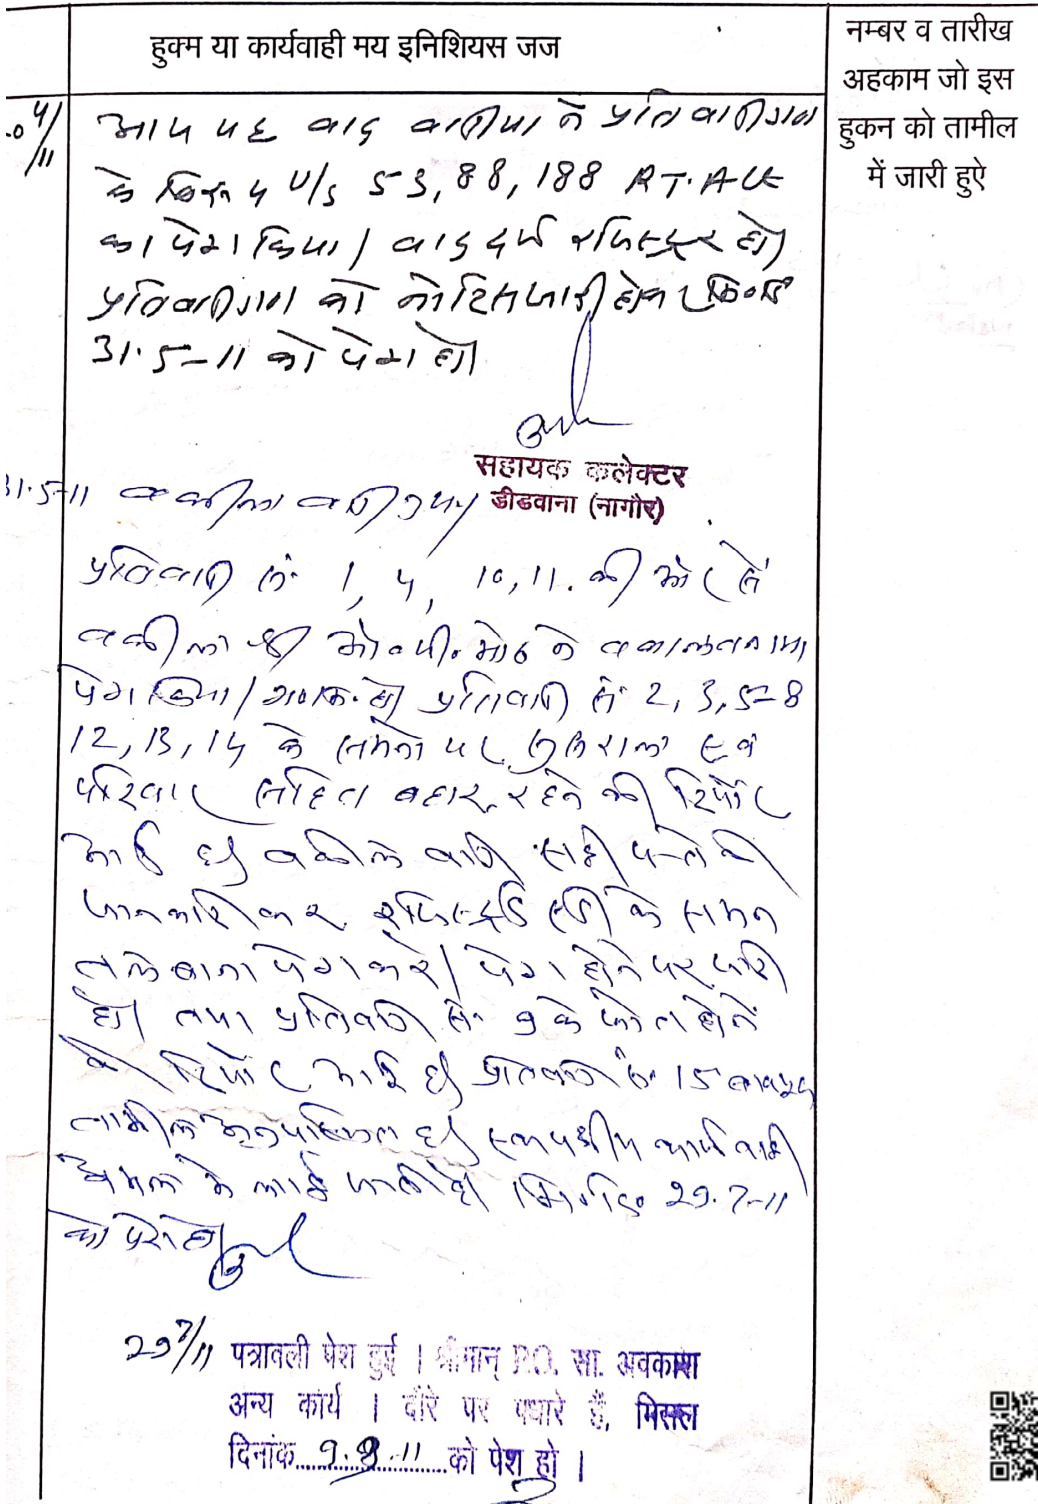 हुक्म या कार्यवाही मय इनिशियस जज
नम्बर व तारीख
अहकाम जो इस
हुकन को तामील
में जारी हुऐ
4/11
आज यह वाद वादीया ने प्रतिवादीगण
के विरूद्ध U/S 53, 88, 188 R.T. Act
का पेश किया। वाद दर्ज रजिस्टर हो।
प्रतिवादीगण को नोटिस जारी होकर
31.5-11 को पेश हो।
सहायक कलेक्टर
डीडवाना (नागौर)
31.5-11 वकील वादी
प्रतिवादी सं. 1, 4, 10, 11. की ओर से
वकील श्री ओ॰पी॰ ने वकालतनामा
पेश किया। हो। प्रतिवादी सं 2, 3, 5-8
12, 13, 14 के पर एवं
परिवार सहित बहार रहने की रिपोर्ट
आई है। वकील वादी सही पते की
जानकारी कर रजिस्टर्ड के समन
तलबाना पेश करे। पेश होने पर जारी
हो। तथा प्रतिवादी सं. 9 के फोत होने
की रिपोर्ट आई है। प्रतिवादी सं. 15 बावजूद
तामील अनुपस्थित है। एकपक्षीय कार्यवाही
अमल में लाई जाती है। 29.7-11
को पेश हो।
29 7/11 पत्रावली पेश हुई । श्रीमान् P.O. सा. अवकाश
अन्य कार्य । दौरे पर पधारे हैं, मिसल
दिनांक 9.9.11 को पेश हो ।